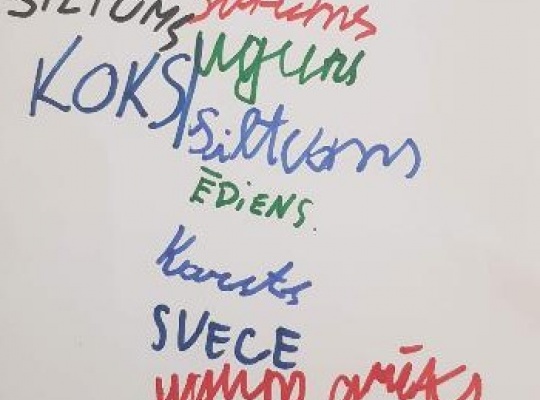 SILTUMS
uguns
KOKS
Siltums
ĒDIENS.
Karsts
SVECE